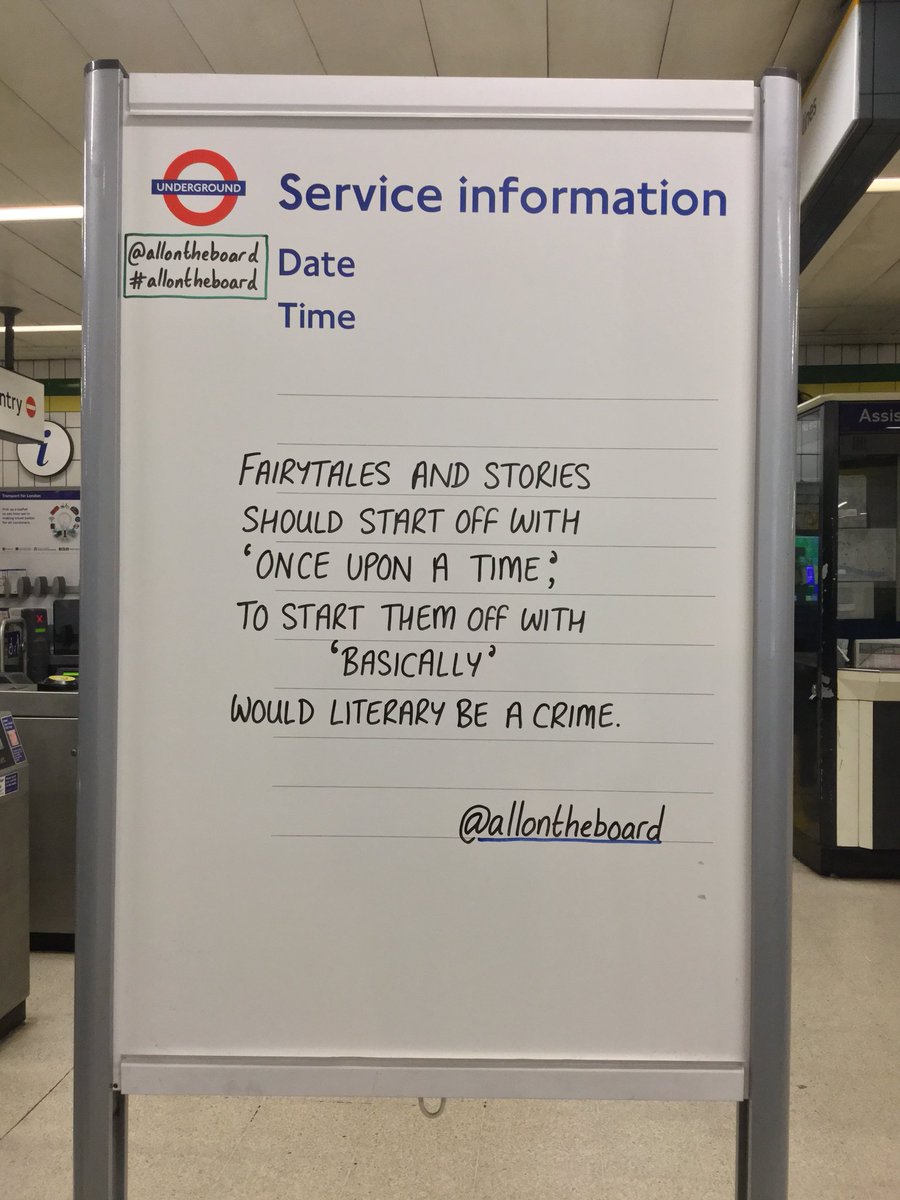 UNDERGROUND
Service information
@allontheboard
#allontheboard
Date
Time
FAIRYTALES AND STORIES
SHOULD START OFF WITH
‘ONCE UPON A TIME’;
TO START THEM OFF WITH
‘BASICALLY’
WOULD LITERARY BE A CRIME.
@allontheboard
ntry
i
Transport for London
Assis